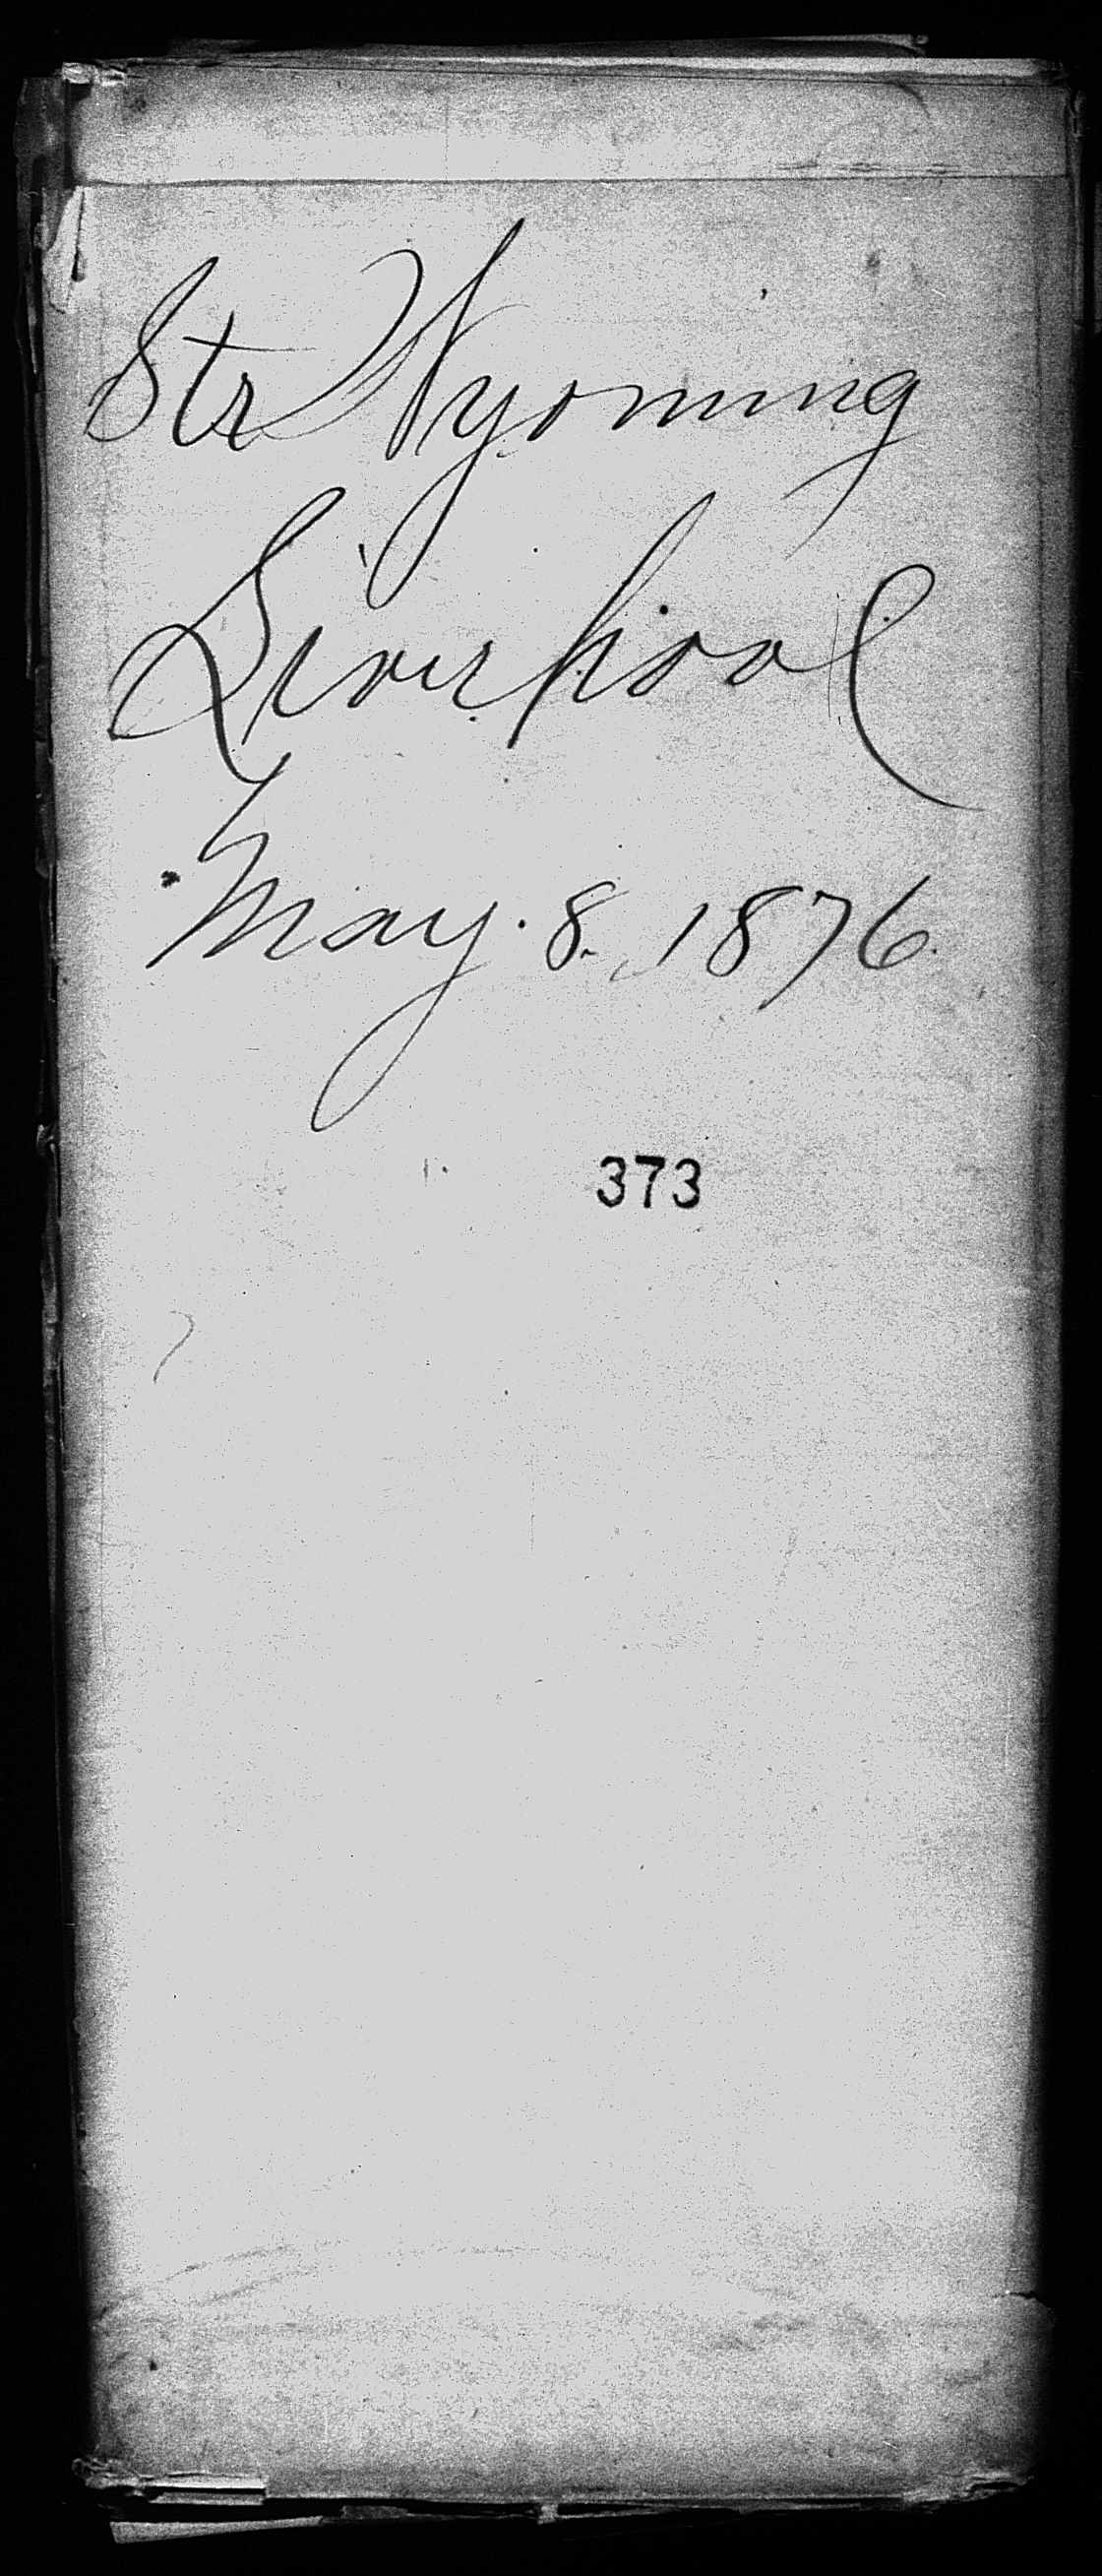 Str Wyoming
Liverpool
May. 8. 1876.
373